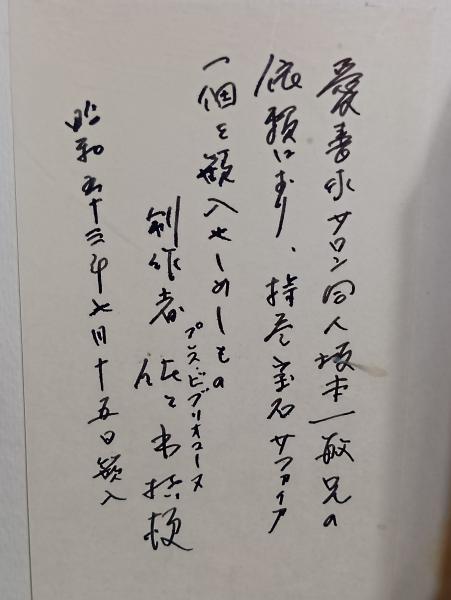 愛書家サロン同人坂本一敏兄の
依頼により、持参宝石サファイア
一個を嵌入せしめしもの
プレスビブリオマーヌ
制作者 佐々木桔梗
昭和五十三年七月十五日嵌入